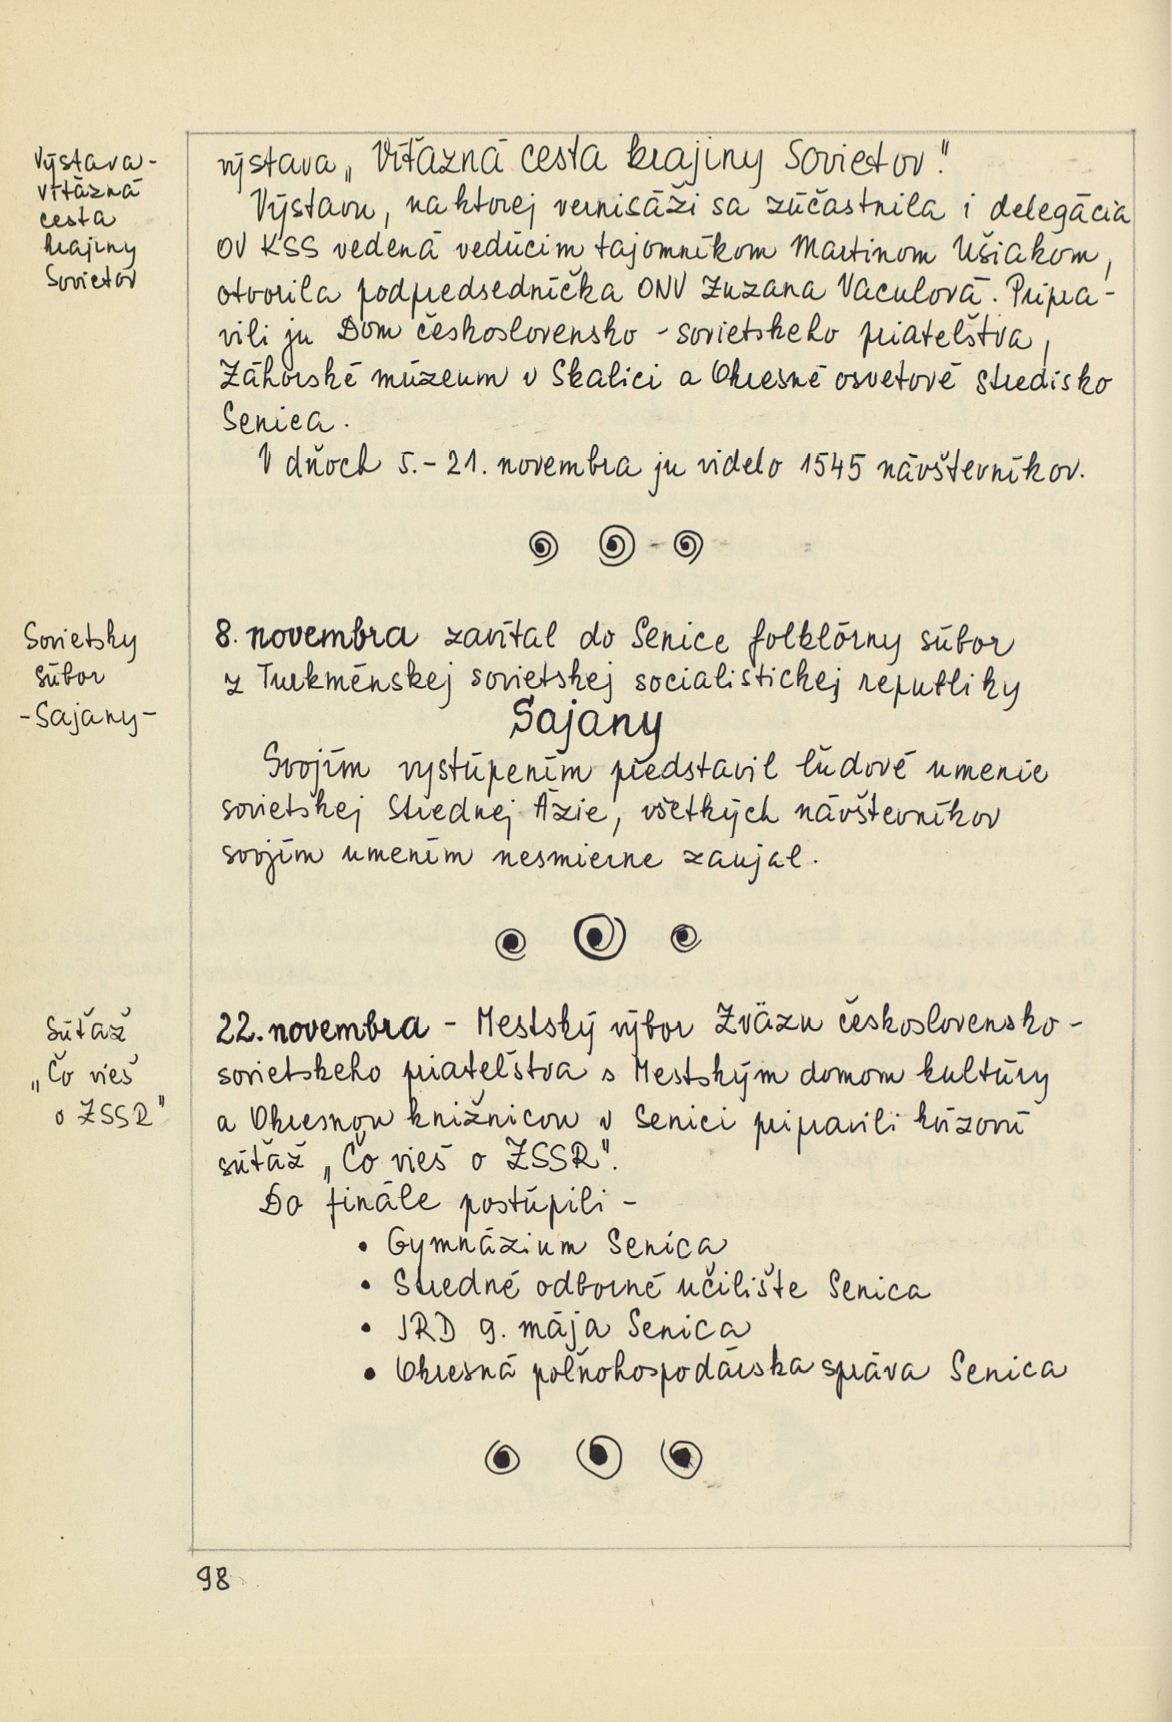 Výstava -
víťazná
cesta
krajiny
Sovietov
výstava „Víťazná cesta krajiny Sovietov."
Výstavu, na ktorej vernisáži sa zúčastnila i delegácia
OV KSS vedená vedúcim tajomníkom Martinom Ušiakom,
otvorila podpredsedníčka ONV Zuzana Vaculová. Pripra-
vili ju Dom československo - sovietskeho priateľstva,
Záhorské múzeum v Skalici a Okresné osvetové stredisko
Senica.
V dňoch 5. - 21. novembra ju videlo 1545 návštevníkov.
Sovietsky
súbor
- Sajany -
8. novembra zavítal do Senice folklórny súbor
z Turkménskej sovietskej socialistickej republiky
Sajany
Svojím vystúpením predstavil ľudové umenie
sovietskej Strednej Ázie, všetkých návštevníkov
svojím umením nesmierne zaujal.
Súťaž
„Čo vieš
o ZSSR"
22. novembra - Mestský výbor Zväzu československo -
sovietskeho priateľstva s Mestským domom kultúry
a Okresnou knižnicou v Senici pripravili kvízovú
súťaž „Čo vieš o ZSSR".
Do finále postúpili -
• Gymnázium Senica
• Stredné odborné učilište Senica
• JRD 9. mája Senica
• Okresná poľnohospodárska správa Senica
98